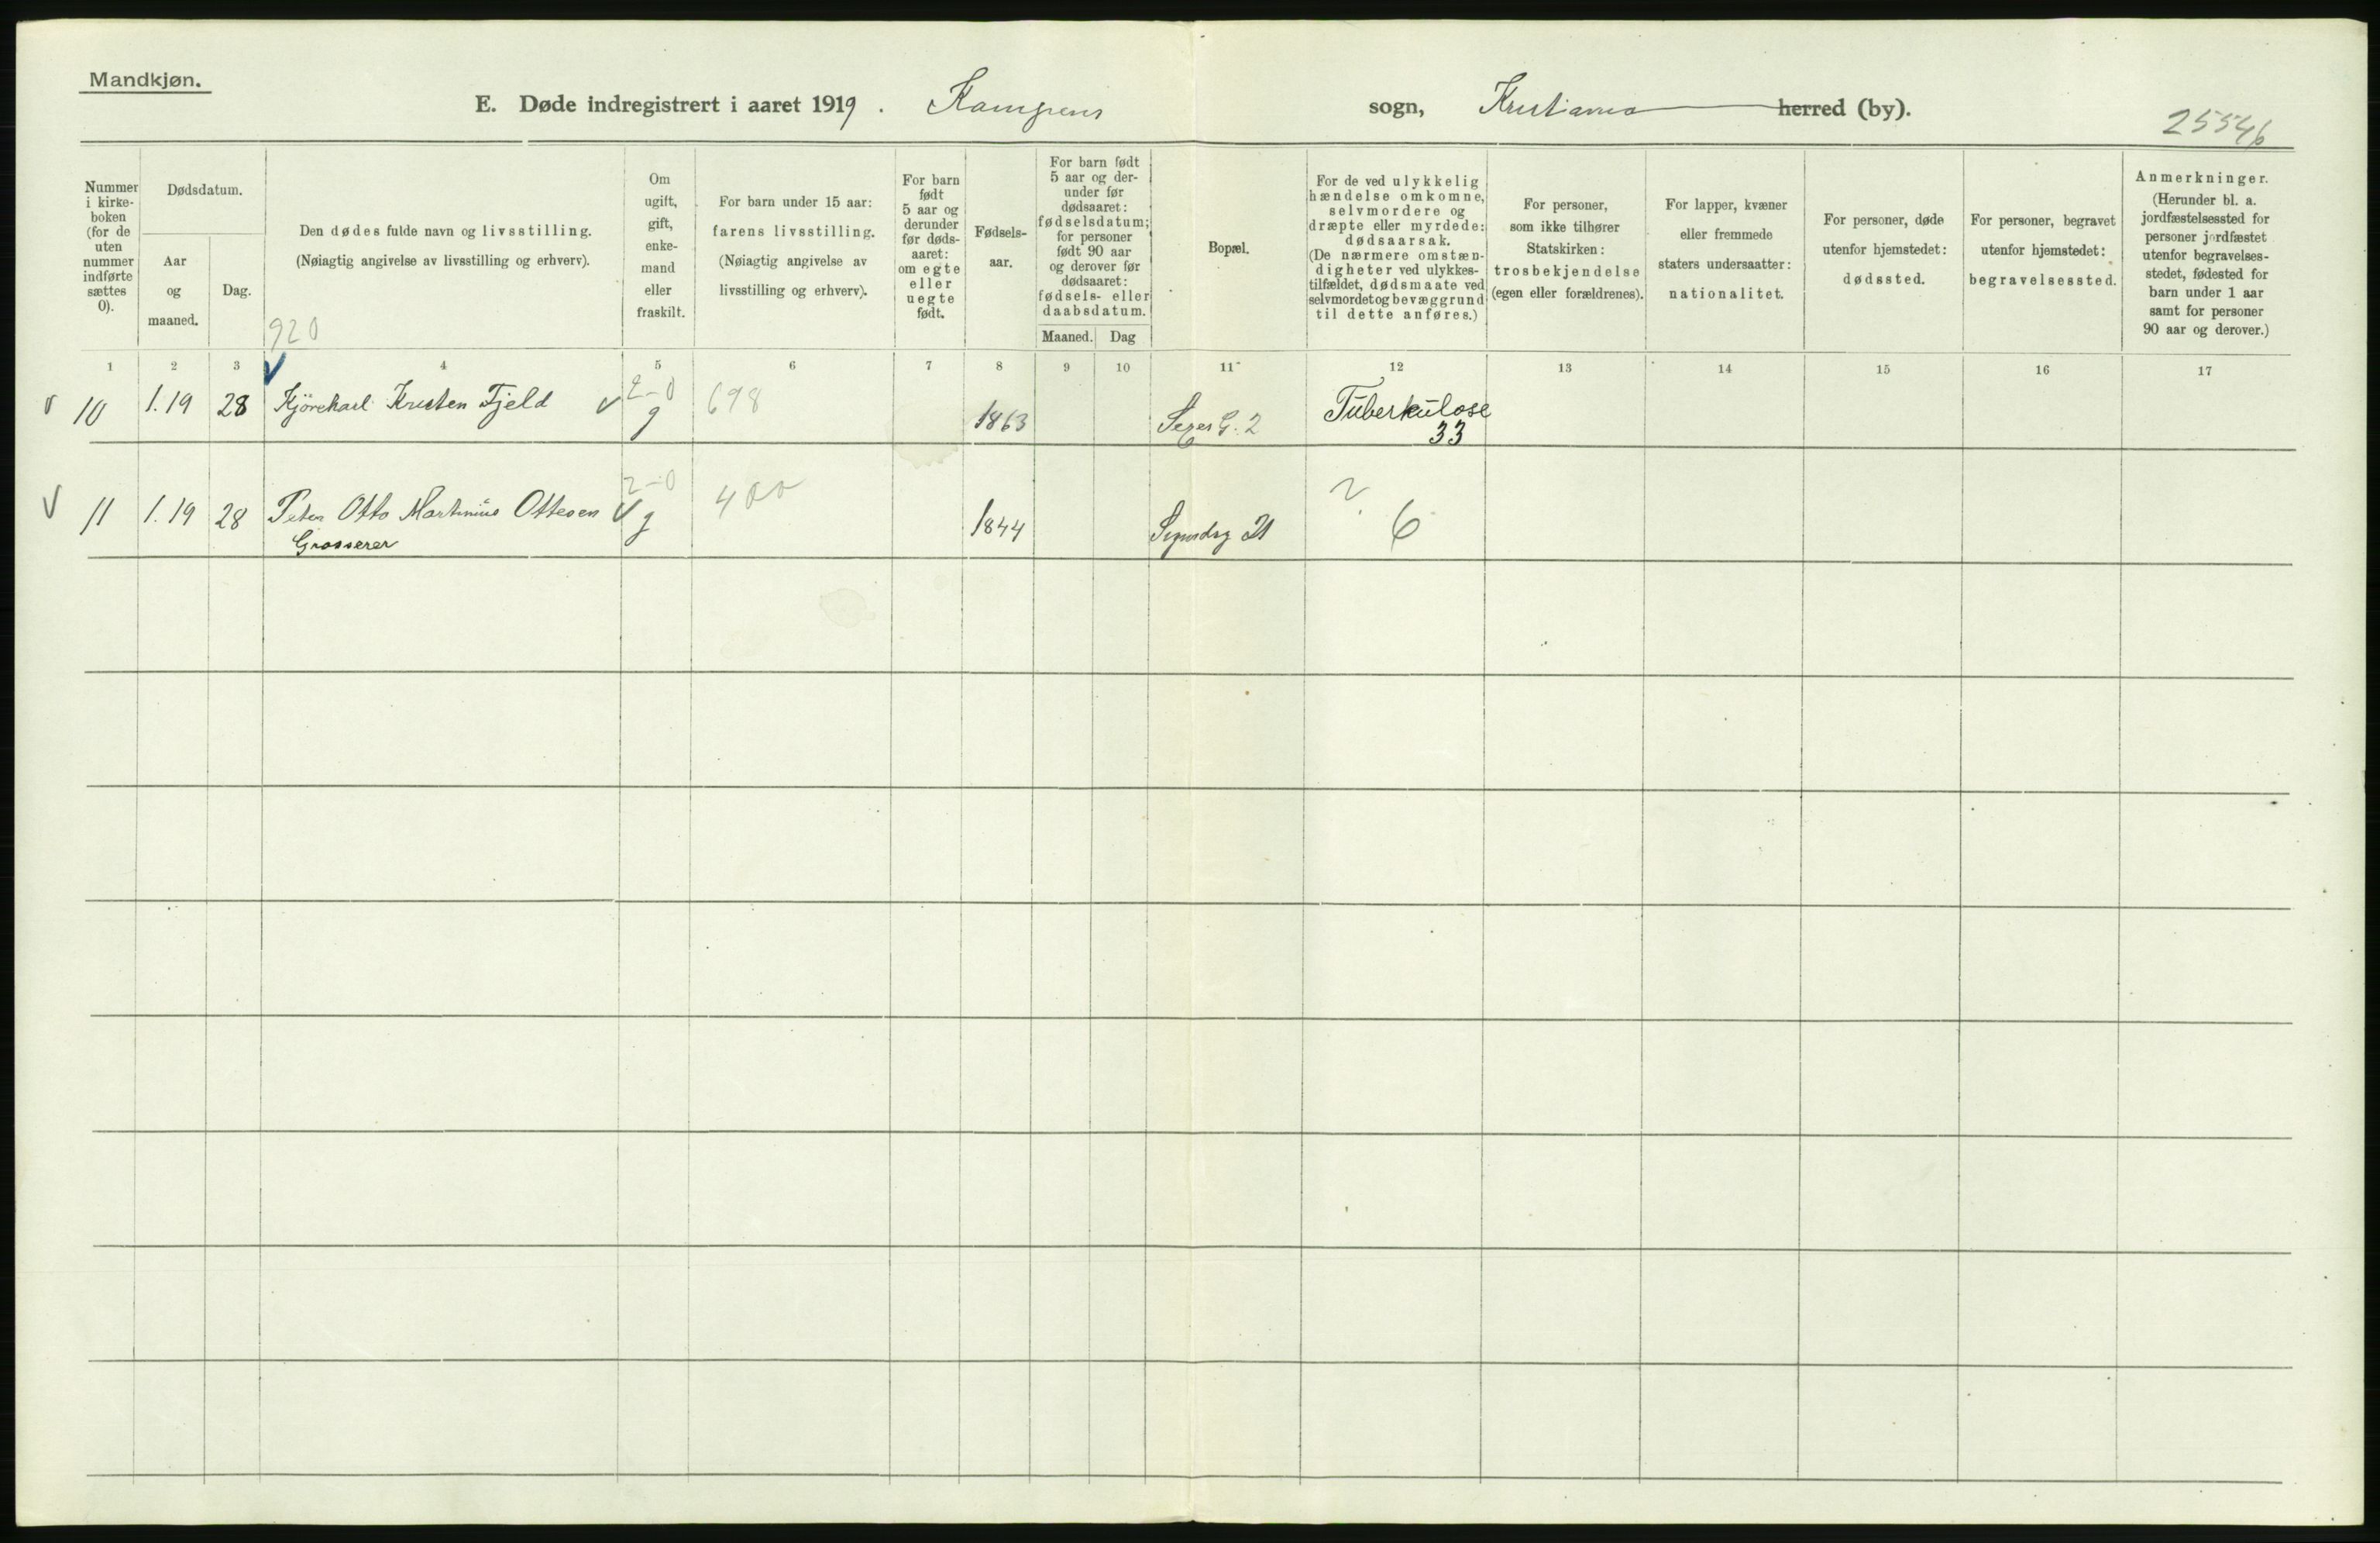 Mandkjøn.
E. Døde indregistrert i aaret 1919. Kampens sogn, Kristiania herred (by).
25546
Nummer i kirke-boken (for de uten nummer indførte sættes 0).
Dødsdatum.
Aar og maaned.
Dag.
Den dødes fulde navn og livsstilling.
(Nøiagtig angivelse av livsstilling og erhverv).
920
Om ugift, gift, enke-mand eller fraskilt.
For barn under 15 aar: farens livsstilling.
(Nøiagtig angivelse av livsstilling og erhverv).
For barn født 5 aar og derunder før døds-aaret: om egte eller uegte født.
Fødsels-aar.
For barn født 5 aar og der-under før dødsaaret: fødselsdatum; for personer født 90 aar og derover før dødsaaret: fødsels- eller daabsdatum.
Maaned. Dag
Bopæl.
For de ved ulykkelig hændelse omkomne, selvmordere og dræpte eller myrdede: dødsaarsak.
(De nærmere omstæn-digheter ved ulykkes-tilfældet, dødsmaate ved selvmordet og bevæggrund til dette anføres.)
For personer, som ikke tilhører Statskirken: trosbekjendelse (egen eller forældrenes).
For lapper, kvæner eller fremmede staters undersaatter: nationalitet.
For personer, døde utenfor hjemstedet: dødssted.
For personer, begravet utenfor hjemstedet: begravelsessted.
Anmerkninger.
(Herunder bl. a. jordfæstelsessted for personer jordfæstet utenfor begravelses-stedet, fødested for barn under 1 aar samt for personer 90 aar og derover.)
1 2 3 4 5 6 7 8 9 10 11 12 13 14 15 16 17
10 1.19 28 Kjørekarl Kristen Fjeld 2-0 g 698 1863 G. 2 Tuberkulose 33
11 1.19 28 Peter Otto Martinius Ottesen 2-0 g 400 1844 21 ? 6
Grosserer